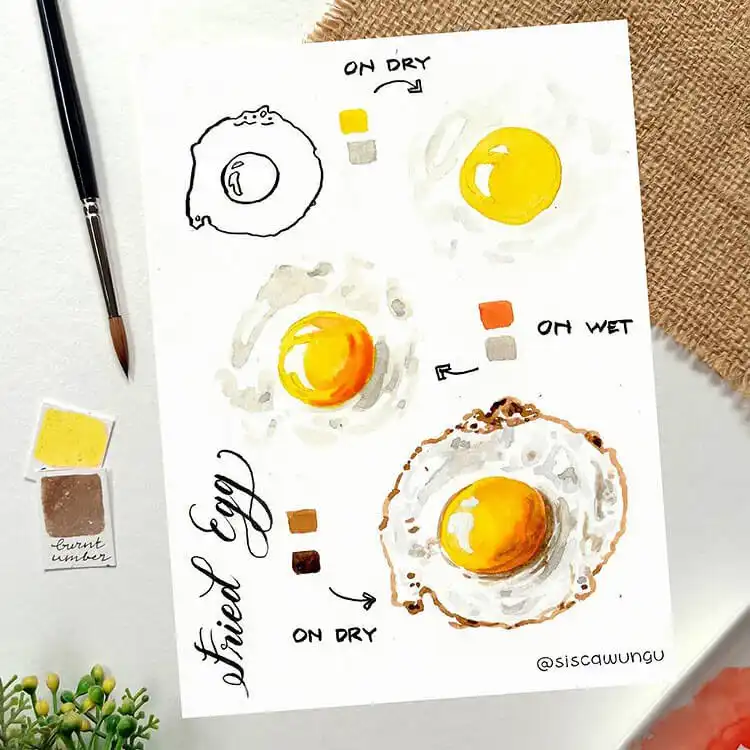 ON DRY
ON WET
Fried Egg
ON DRY
@siscawungu
burnt
umber